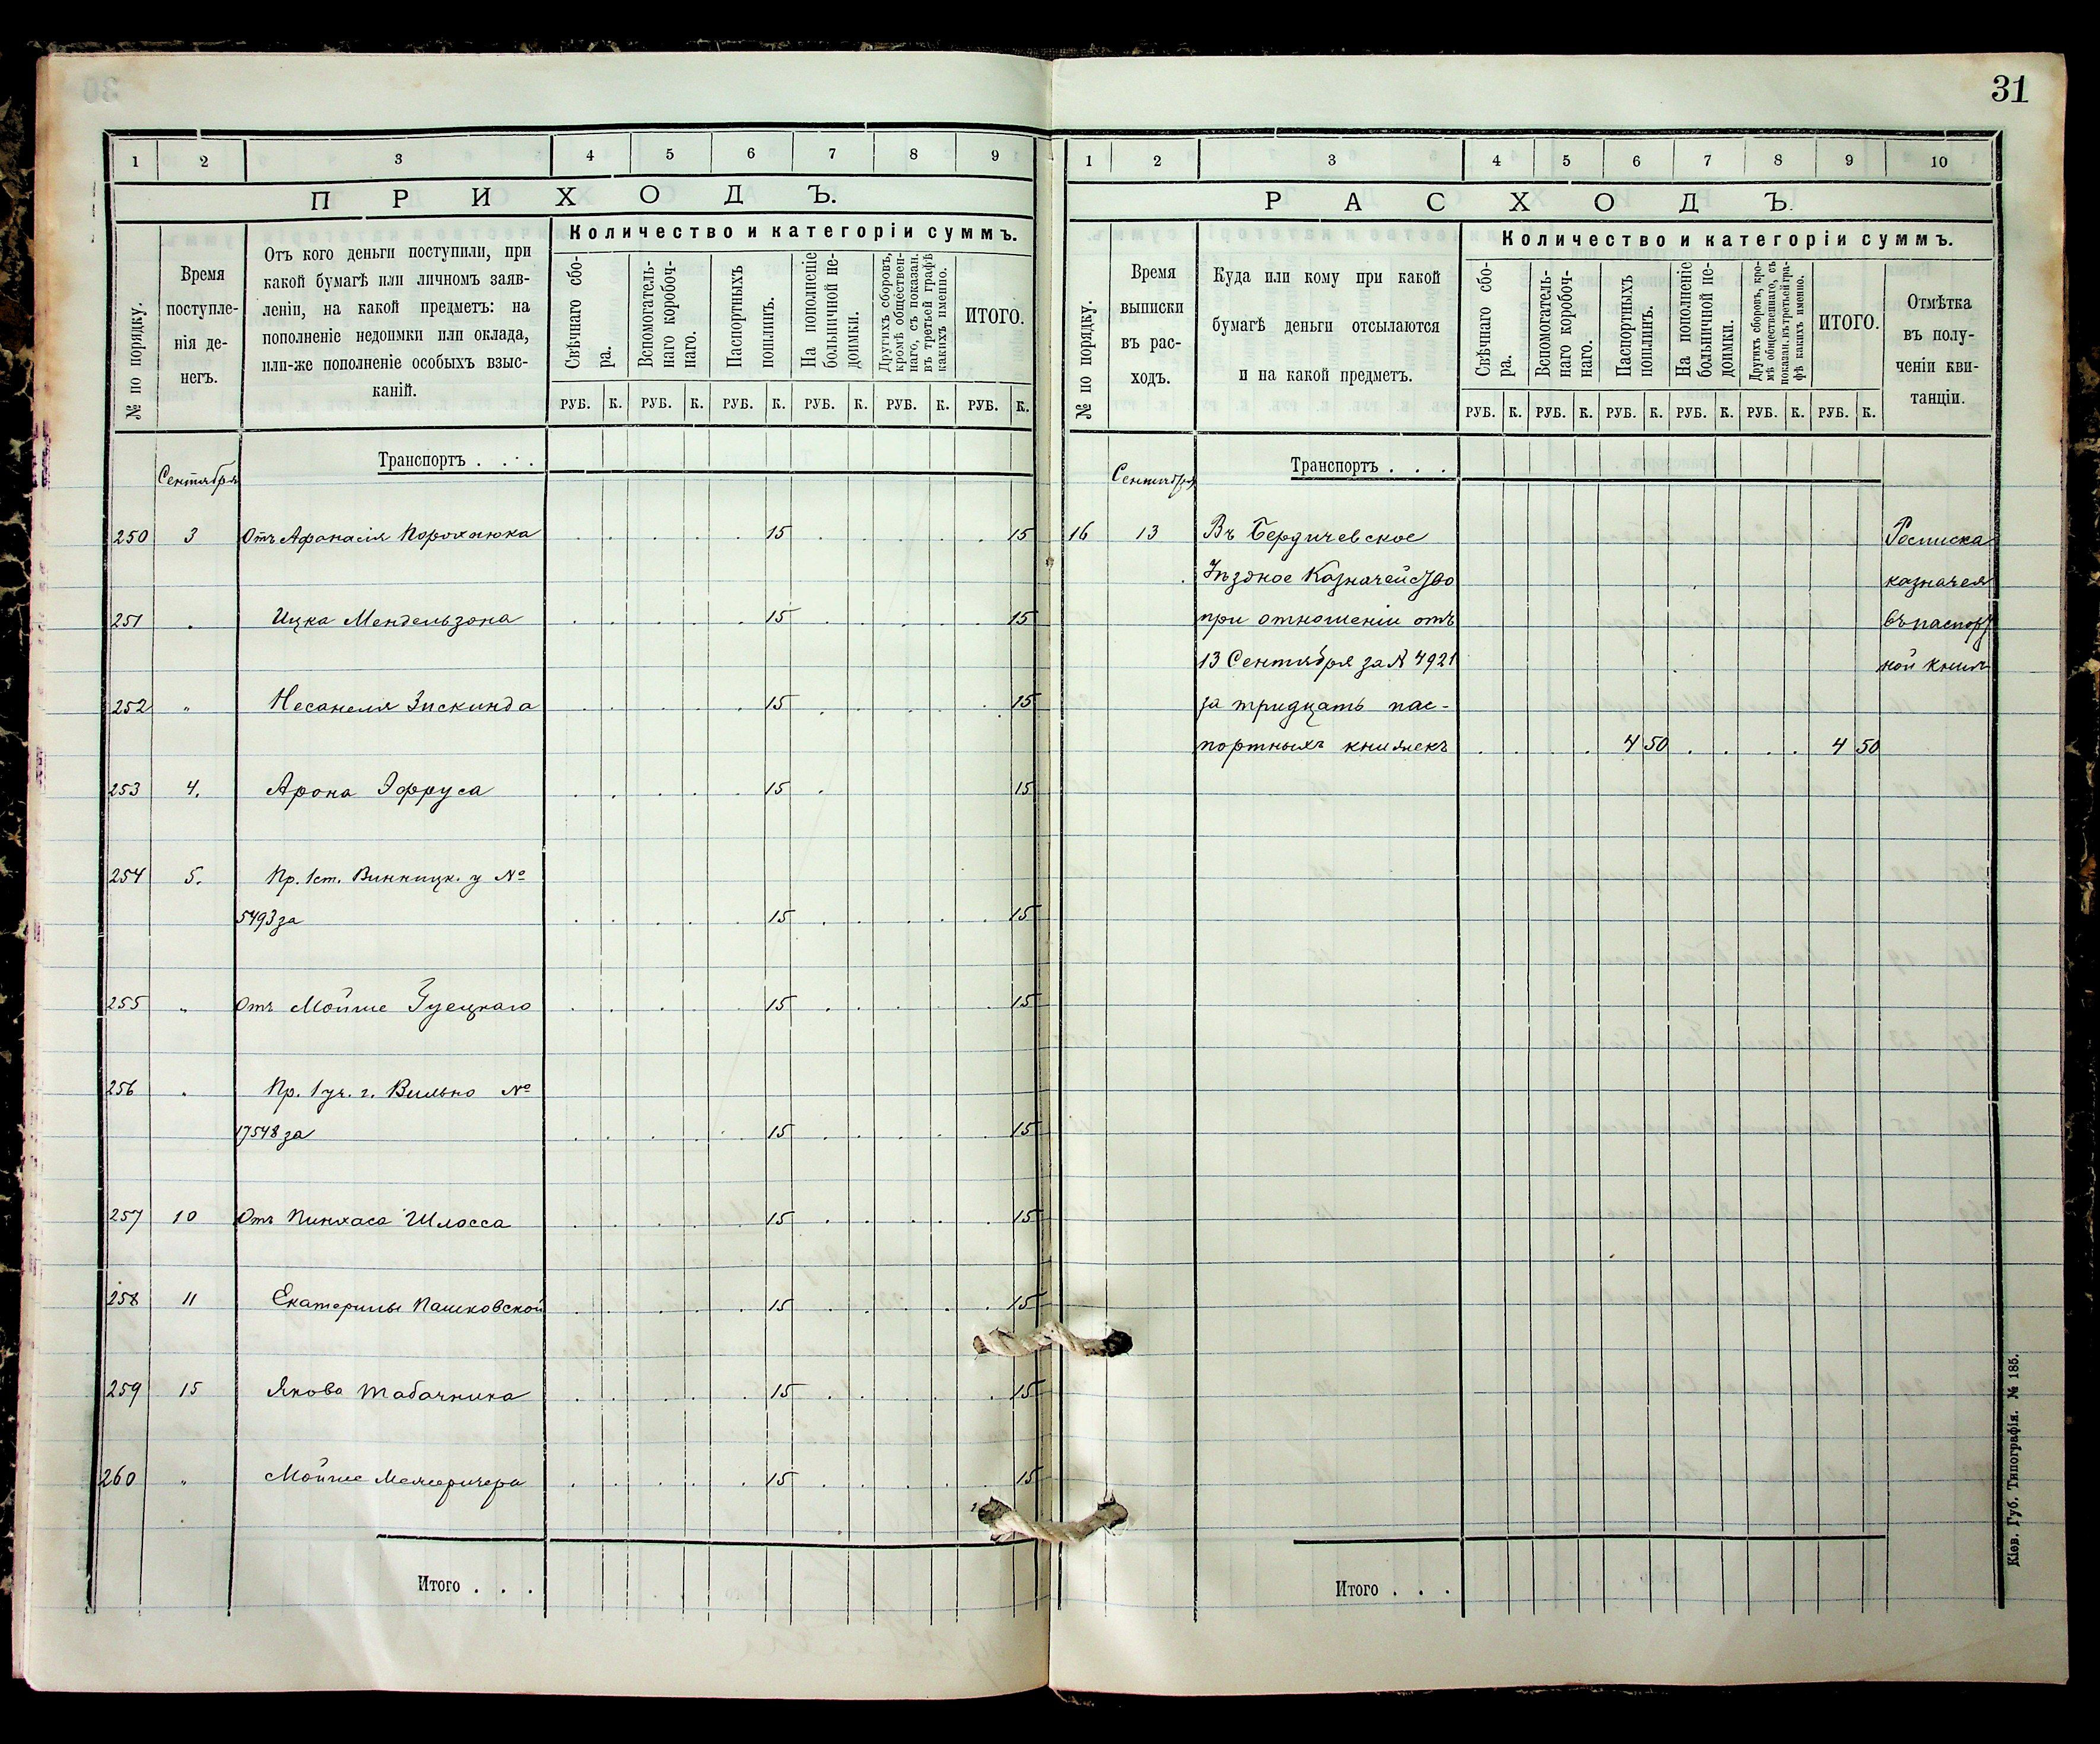 31
1 2 3 4 5 6 7 8 9
ПРИХОДЪ.
№ по порядку.
Время
поступле-
нія де-
негъ.
Отъ кого деньги поступили, при
какой бумагѣ или личномъ заяв-
леніи, на какой предметъ: на
пополненіе недоимки или оклада,
или-же пополненіе особыхъ взыс-
каній.
Количество и категоріи суммъ.
Свѣчнаго сбо-
ра.
Вспомогатель-
наго коробоч-
наго.
Паспортныхъ
пошлинъ.
На пополненіе
больничной не-
доимки.
Другихъ сборовъ,
кромѣ обществен-
наго, съ показан.
въ третьей графѣ
какихъ именно.
ИТОГО.
РУБ. К. РУБ. К. РУБ. К. РУБ. К. РУБ. К. РУБ. К.
Транспортъ . . .
Сентября
250 3 Отъ Афанасія Порохнюка 15 15
251 . Ицка Мендельзона 15 15
252 " Несанеля Зискинда 15 15
253 4. Арона Эфруса 15 15
254 5. Пр. 1 ст. Винницк. у №
5493 за 15 15
255 " Отъ Мойше 15 15
256 " Пр. 1 уч. г. Вильно №
17548 за 15 15
257 10 Отъ Пинхаса Шлосса 15 15
258 11 Екатерины Пашковской 15 15
259 15 Якова Табачника 15 15
260 " Мойше Межеричера 15 15
Итого . . .
1 2 3 4 5 6 7 8 9 10
РАСХОДЪ.
№ по порядку.
Время
выписки
въ рас-
ходъ.
Куда или кому при какой
бумагѣ деньги отсылаются
и на какой предметъ.
Количество и категоріи суммъ.
Свѣчнаго сбо-
ра.
Вспомогатель-
наго коробоч-
наго.
Паспортныхъ
пошлинъ.
На пополненіе
больничной не-
доимки.
Другихъ сборовъ, кро-
мѣ общественнаго, съ
показан. въ третьей гра-
фѣ какихъ именно.
ИТОГО.
Отмѣтка
въ полу-
ченіи кви-
танціи.
РУБ. К. РУБ. К. РУБ. К. РУБ. К. РУБ. К. РУБ. К.
Транспортъ . . .
Сентября
16 13 Въ Бердичевское Росписка
Уѣздное Казначейство казначея
при отношеніи отъ въ паспорт
13 Сентября за № 4921 ной книгѣ
за тридцать пас-
портныхъ книжекъ 4 50 4 50
Итого . . .
Кіев. Губ. Типографія. № 185.